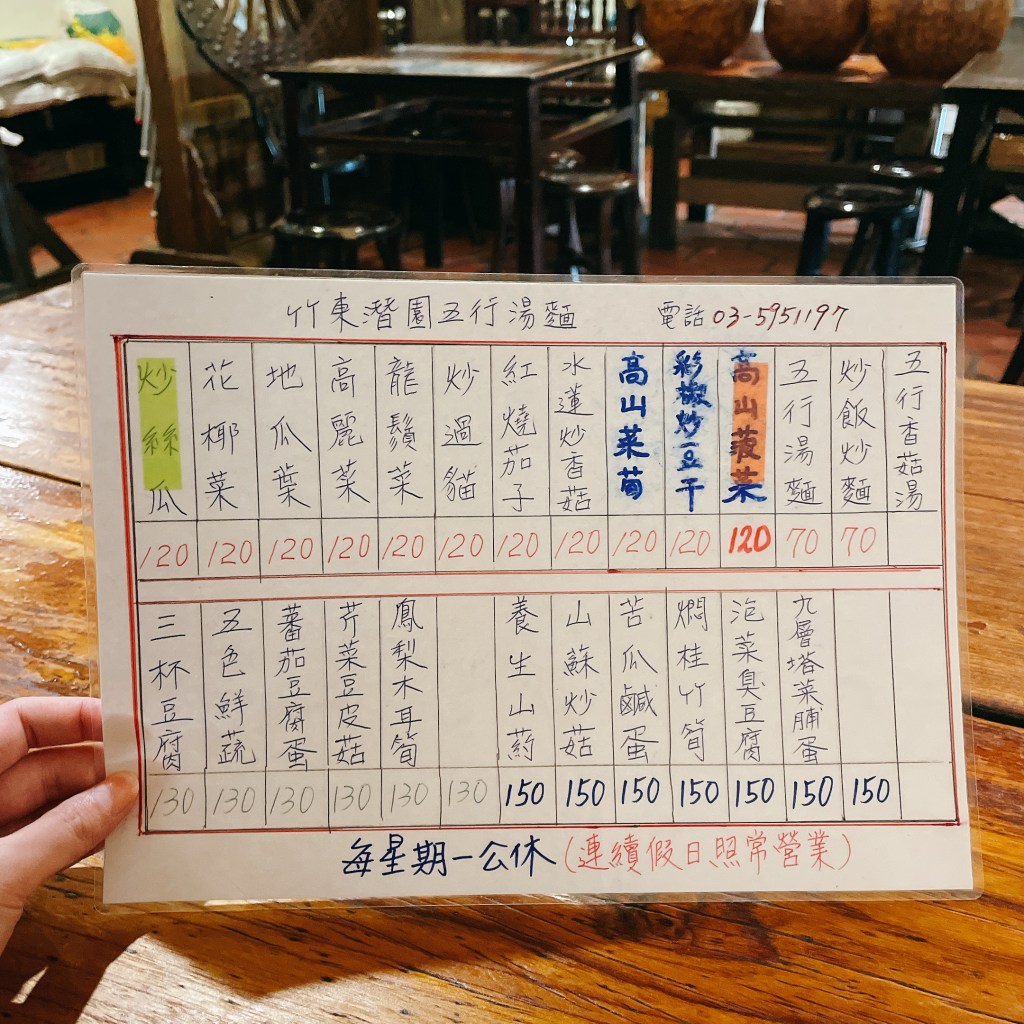 竹東潛園五行湯麵
電話 03-5951197
炒絲瓜
花椰菜
地瓜葉
高麗菜
龍鬚菜
炒過貓
紅燒茄子
水蓮炒香菇
高山菜筍
彩椒炒豆干
高山菠菜
五行湯麵
炒飯炒麵
五行香菇湯
120
120
120
120
120
120
120
120
120
120
120
70
70
三杯豆腐
五色鮮蔬
蕃茄豆腐蛋
芹菜豆皮菇
鳳梨木耳筍
養生山葯
山蘇炒菇
苦瓜鹹蛋
燜桂竹筍
泡菜臭豆腐
九層塔菜脯蛋
130
130
130
130
130
130
150
150
150
150
150
150
150
每星期一公休(連續假日照常營業)